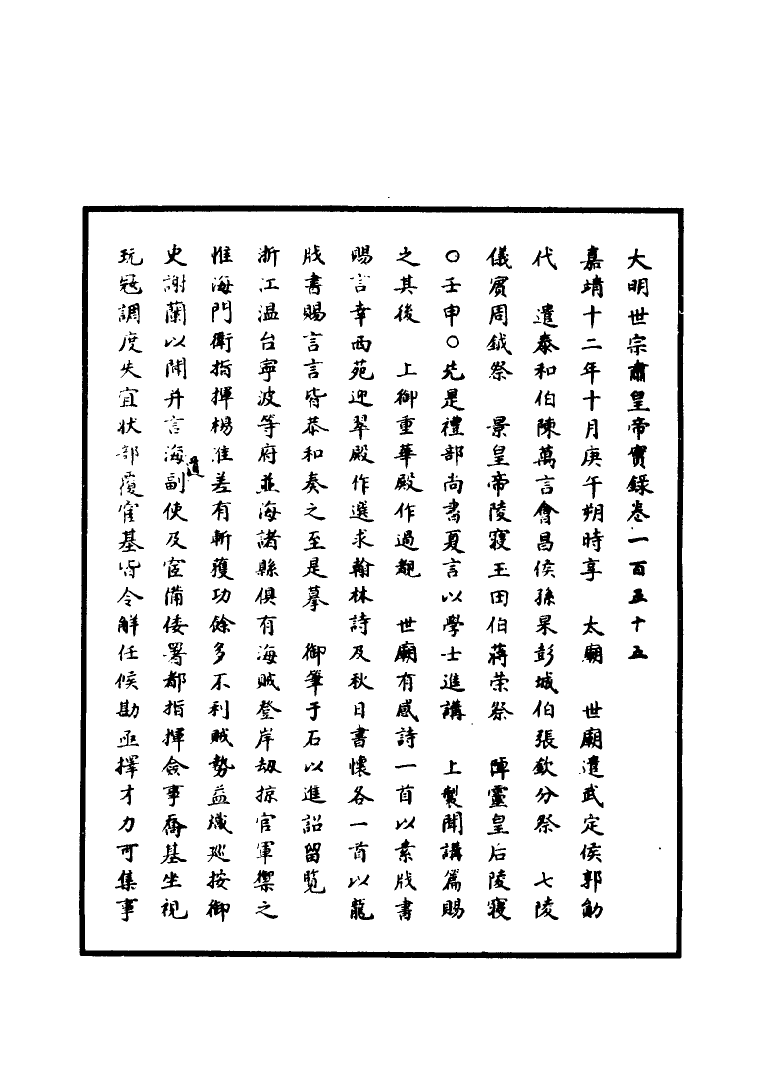 大明世宗肅皇帝實錄卷一百五十五
嘉靖十二年十月庚午朔時享　太廟　世廟遣武定侯郭勛
代　遣泰和伯陳萬言會昌侯孫杲彭城伯張欽分祭　七陵
儀賓周鉞祭　景皇帝陵寢玉田伯蔣荣祭　悼靈皇后陵寢
○壬申○先是禮部尚書夏言以學士進講　上製聞講篇賜
之其後　上御重華殿作過覩　世廟有感詩一首以素牋書
賜言幸西苑迎翠殿作選求翰林詩及秋日書懷各一首以龍
牋書賜言言皆恭和奏之至是摹　御筆于石以進詔留覽
浙江温台寧波等府並海諸縣俱有海賊登岸刼掠官軍禦之
惟海門衛指揮楊淮差有斬獲功餘多不利賊勢益熾巡按御
史謝蘭以聞并言海道副使及官備倭署都指揮僉事喬基坐視
玩寇調度失宜狀部覆官基皆令觧任候勘亟擇才力可集事